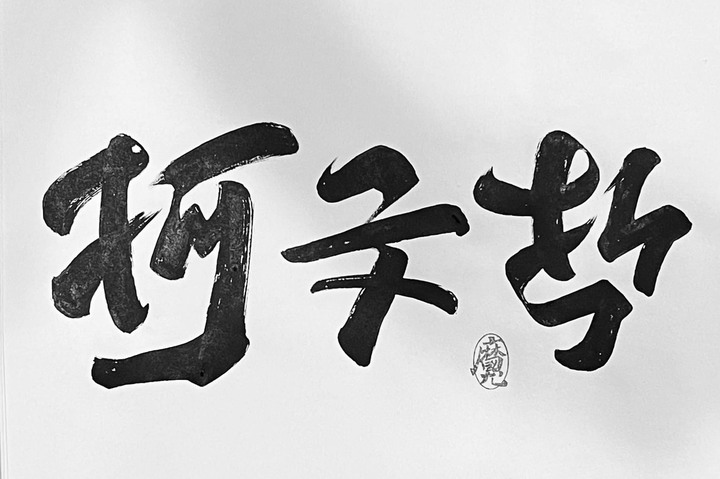 柯文哲